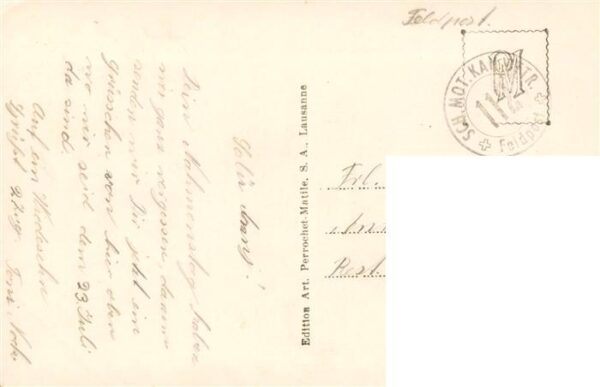 Feldpost.
SCH. MOT. KAN. BTR.
M
Feldpost
Edition Art. Perrochet-Matile, S. A., Lausanne
Dein Nahmenstag haben
wir ganz vergessen, darum
senden wir Dir jetzt ein
Grüsschen von hier oben
wo wir seid dem 23. Juli
da sind.
Auf ein Wiedersehn
Grüsst
Toni
Frl.
Rest.